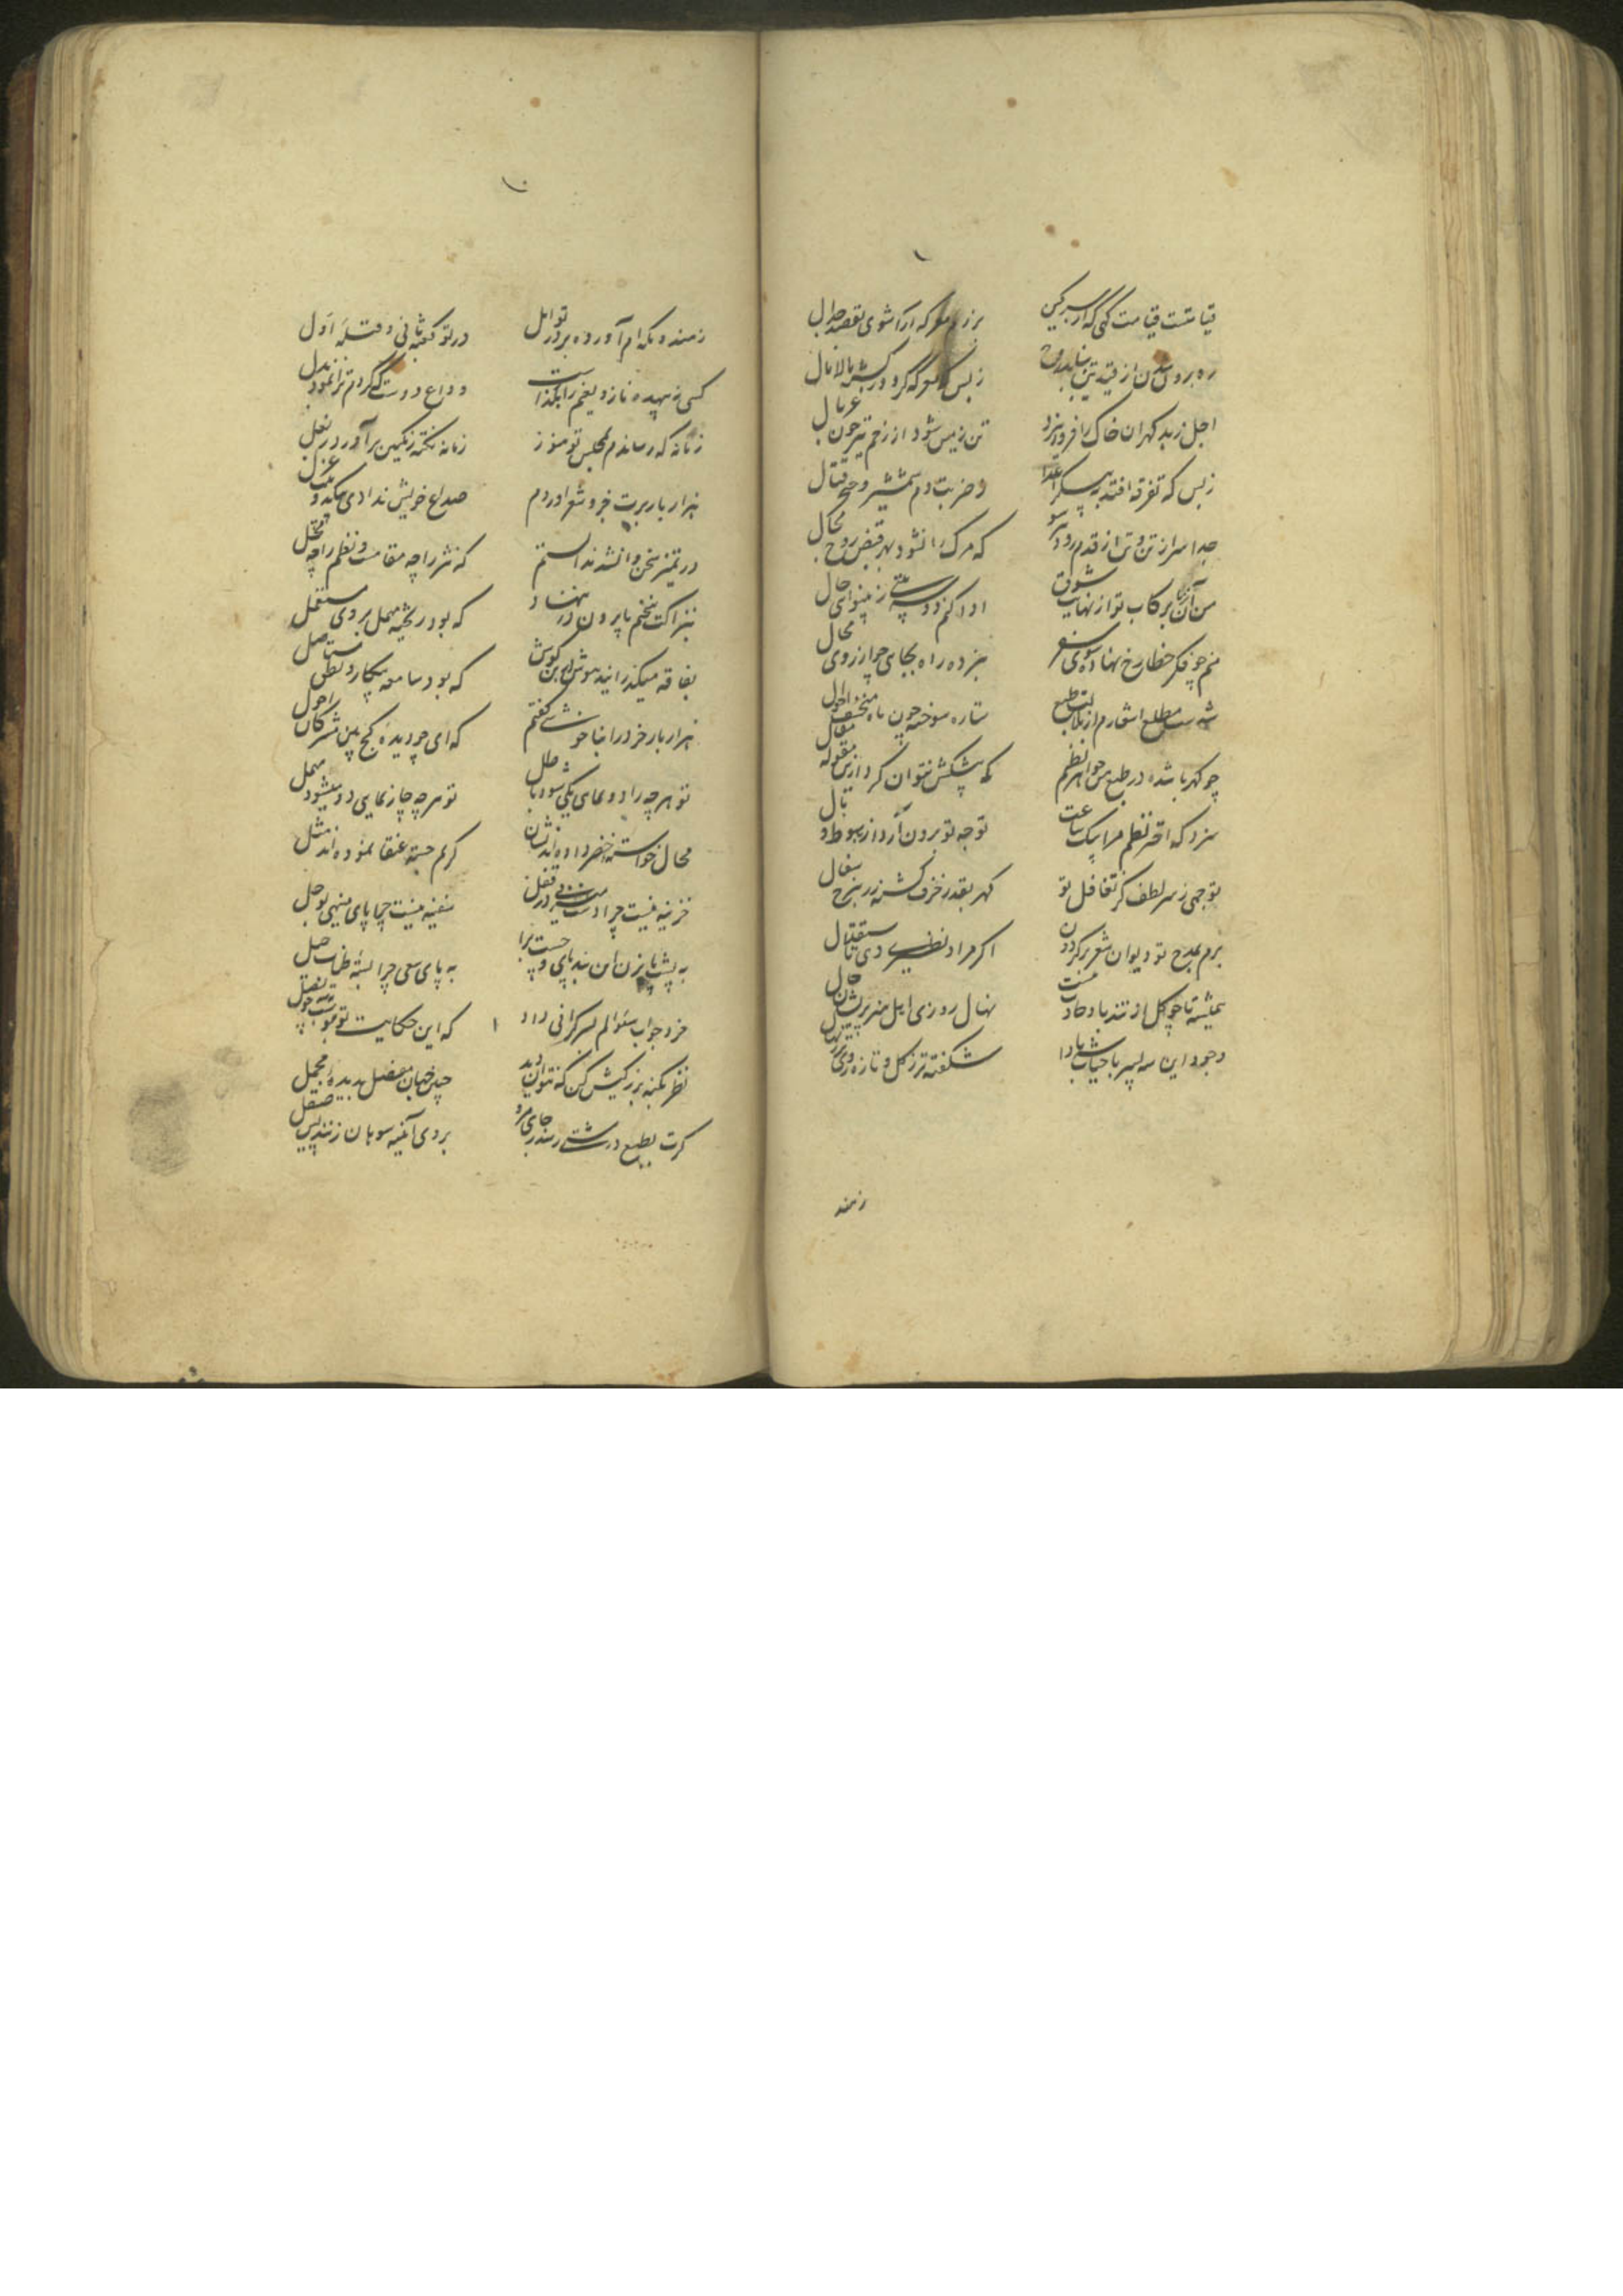 قیامتست قیامت کهی که از سر کین
برزم معرکه آرا شوی بقصد جدال
ره برون شدن از قید تن نیابد روح
زبس که معرکه گردد ز کشته مالامال
اجل زبد کهران خاک را فرو بیزد
تن زمین شود از زخم تیر چون غربال
زبس که تفرقه افتد به پیکر اعدا
ز ضرب تیر و دم شمشیر و حرب قتال
جدا سر از تن و تن از قدم رود هر سو
که مرک را نشود بهر قبض روح مجال
من آن رکاب تو از نهایت شوق
ادا کنم دو سه بیتی ز بینوای حال
منم چو فکر خطا رخ نهاده سوی سفر
نبرده راه بجای چو آرزوی محال
شدست مطلع اشعارم از بلاغت طبع
ستاره سوخته چون ماه منخسف احوال
چو کهر باشد در طبع من جواهر نظم
که پیشکش نتوان کرد ازین مقوله مقال
سزد که اختر نظم مرا بیک ساعت
توجه تو برون آرد از هبوط وبال
توجهی ز سر لطف کز تغافل تو
کهر بقدر خزف کشته زر بنرخ سفال
برم بمدح تو دیوان شعر بر گردون
اگر مراد نظیری دی استقبال
همیشه تا چو گل از تند باد حادثه است
نهال روزی اهل هنر پریشان حال
وجود این سه پسر با حیات باد ترا
شکفته تر ز گل و تازه روی تر ز نهال
زمند
زمند و مکه ام آورده بر در تو امل
در تو کعبه ثانی و قبله اول
کسی نه بیهده ناز و نعیم را بگذاشت
وداع دوست که کردم ترا نمود بدل
زمانه که رساندم بمجلس تو هنوز
زمانه نکته رنگین بر آورد ز بغل
هزار بار برت جزو شعر آوردم
صداع خویش ندادی بیک دو بیت غزل
در تمیز سخن وا نشد ندانستم
که نثر را چه مقامست و نظم را چه محل
نزاکت سخنم پا برون در ننهاد
که بود ریخته مهمل بروی مستعمل
بفاقه میگذرانید هوش در بن گوش
که بود سامعه بیکار و نطق مستاصل
هزار بار خرد را بناخوشی گفتم
که ای چو دیده کج بین مشرکان احول
تو هر چه را دو نمای یکی شود باطل
تو هر چه چار نمایی دو میشود مهمل
محال خواسته خضر داده اند نشان
کریم جسته عنقا نموده اند مثل
خزینه نیست چرا دست میزنی در قفل
سفینه نیست چرا پای مینهی بوحل
به پشت پا بزن این بند پای و چست برا
به پای سعی چرا بسته طناب حیل
خرد جواب سئوالم بسر گرانی داد
که این حکایت تو
نظر بکنه بزرگیش کن که نتوان دید
چنین جهان مفصل بدیده مجمل
کرت بطبع درشتی رسد ز جای مرو
بروی آئینه سوهان زنند پس صیقل